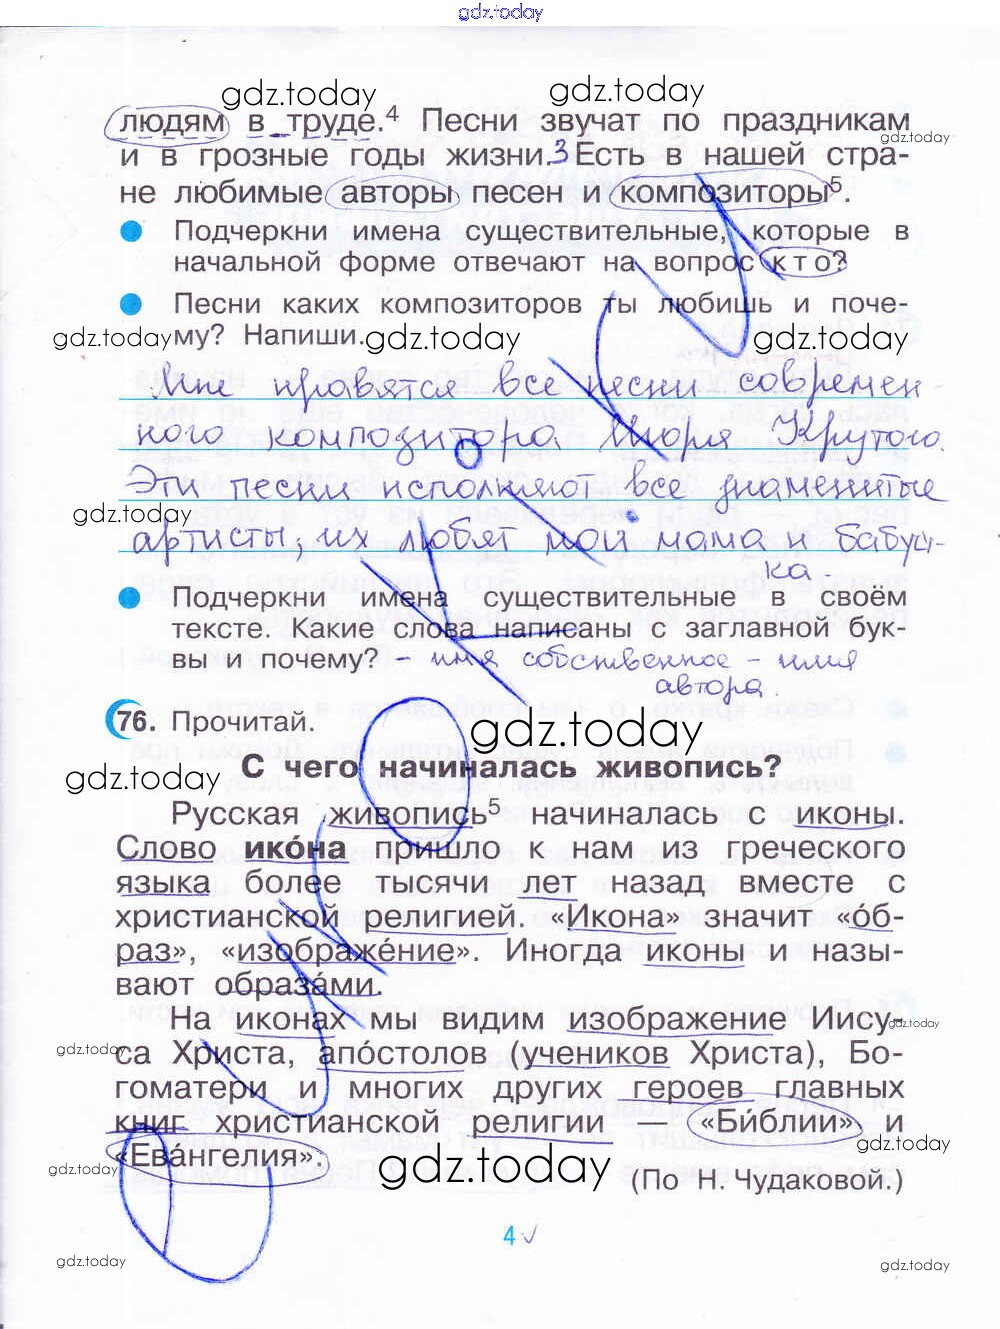 gdz.today
gdz.today gdz.today
людям в труде.⁴ Песни звучат по праздникам
gdz.today
и в грозные годы жизни.3 Есть в нашей стра-
не любимые авторы песен и композиторы⁵.
Подчеркни имена существительные, которые в
начальной форме отвечают на вопрос кто?
Песни каких композиторов ты любишь и поче-
му? Напиши.
gdz.today gdz.today gdz.today
Мне нравятся все песни современ
ного композитора Игоря Крутого.
Эти песни исполняют все знаменитые
gdz.today
артисты, их любят мои мама и бабуш-
ка.
Подчеркни имена существительные в своём
тексте. Какие слова написаны с заглавной бук-
вы и почему? - имя собственное - имя
автора.
76. Прочитай.
gdz.today
gdz.today
С чего начиналась живопись?
Русская живопись⁵ начиналась с иконы.
Слово ико́на пришло к нам из греческого
языка более тысячи лет назад вместе с
христианской религией. «Икона» значит «о́б-
раз», «изображе́ние». Иногда иконы и назы-
вают образа́ми.
На иконах мы видим изображение Иису-
gdz.today
са Христа, апо́столов (учеников Христа), Бо-
gdz.today
гоматери и многих других героев главных
книг христианской религии — «Би́блии» и
gdz.today
«Ева́нгелия».
gdz.today gdz.today
(По Н. Чудаковой.)
4
gdz.today gdz.today